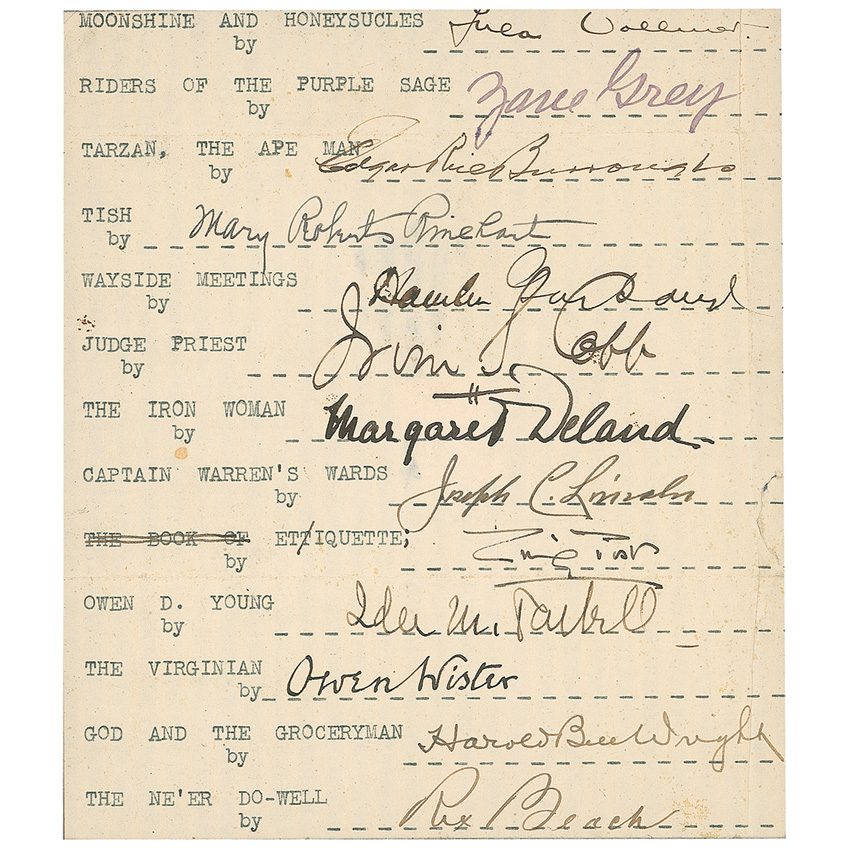 MOONSHINE AND HONEYSUCLES
by Lula Vollmer.
RIDERS OF THE PURPLE SAGE
by Zane Grey
TARZAN, THE APE MAN
by Edgar Rice Burroughs
TISH
by Mary Roberts Rinehart
WAYSIDE MEETINGS
by Hamlin Garland
JUDGE PRIEST
by Irvin S. Cobb
THE IRON WOMAN
by Margaret Deland
CAPTAIN WARREN'S WARDS
by Joseph C. Lincoln
THE BOOK OF ETTIQUETTE;
by Emily Post
OWEN D. YOUNG
by Ida M. Tarbell
THE VIRGINIAN
by Owen Wister
GOD AND THE GROCERYMAN
by Harold Bell Wright
THE NE'ER DO-WELL
by Rex Beach